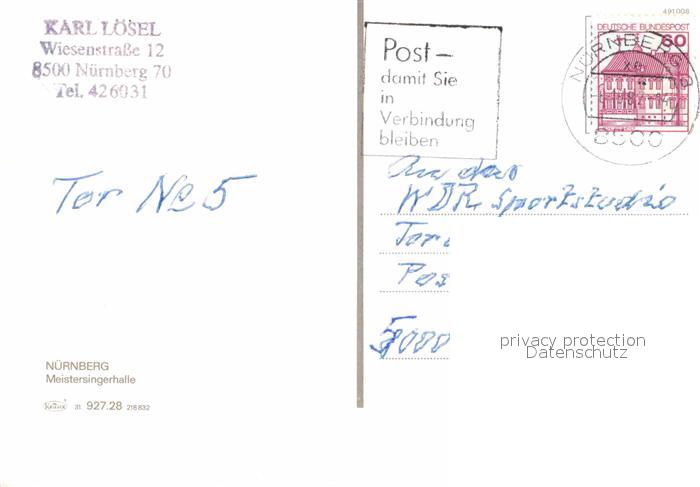 KARL LÖSEL
Wiesenstraße 12
8500 Nürnberg 70
Tel. 426031
491008
Post –
damit Sie
in
Verbindung
bleiben
DEUTSCHE BUNDESPOST
60
NÜRNBERG
8500
Tor No 5
An das
WDR Sportstudio
Tor
Pos
5000
privacy protection
Datenschutz
NÜRNBERG
Meistersingerhalle
Krüger 31 927.28 218832